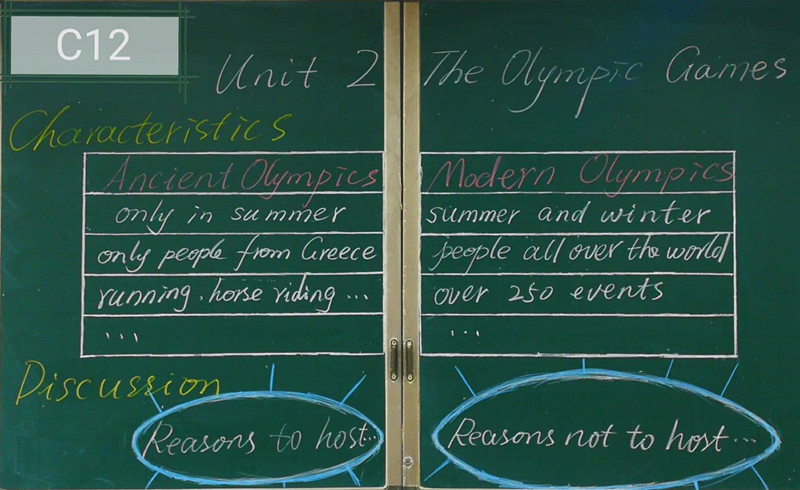 C12
Unit 2 The Olympic Games
Characteristics
Ancient Olympics Modern Olympics
only in summer summer and winter
only people from Greece people all over the world
running, horse riding ... over 250 events
... ...
Discussion
Reasons to host... Reasons not to host...